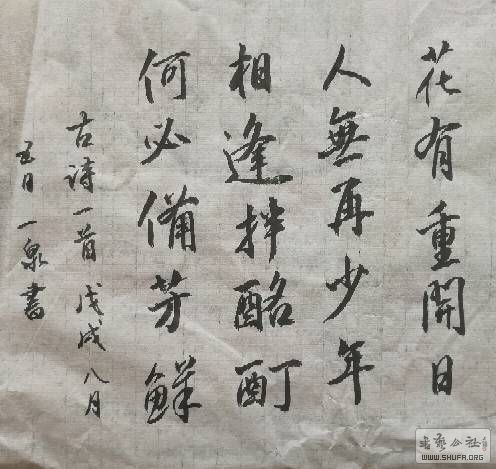 花有重開日
人無再少年
相逢拌酩酊
何必備芳鮮
古詩一首戊戌八月
五日一泉書
书艺公社
WWW.SHUFA.ORG